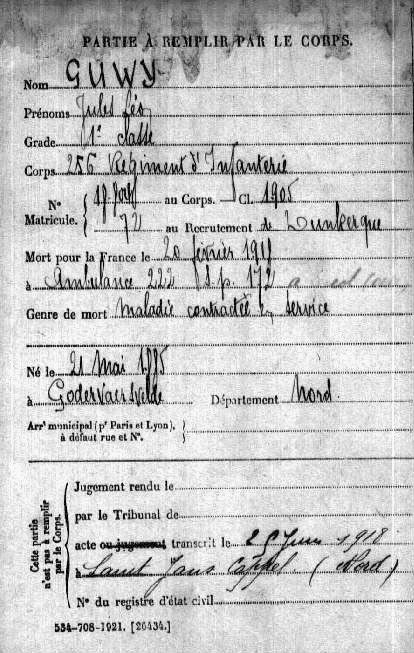 PARTIE À REMPLIR PAR LE CORPS.
Nom GUWY
Prénoms Jules Léo
Grade 1e classe
Corps 256 Régiment d'Infanterie
N° Matricule. { au Corps. — Cl. 1905
72 au Recrutement de Dunkerque
Mort pour la France le 20 février 1918
à Ambulance 222 S.p. 172
Genre de mort Maladie contractée en service
Né le 21 Mai 1885
à Godewaersvelde Département Nord.
Arrt municipal (pr Paris et Lyon),
à défaut rue et N°.
Cette partie
n'est pas à remplir
par le Corps.
Jugement rendu le
par le Tribunal de
acte ou jugement transcrit le 1918
à Saint Jans Cappel (Nord)
N° du registre d'état civil
534-708-1921. [26434.]